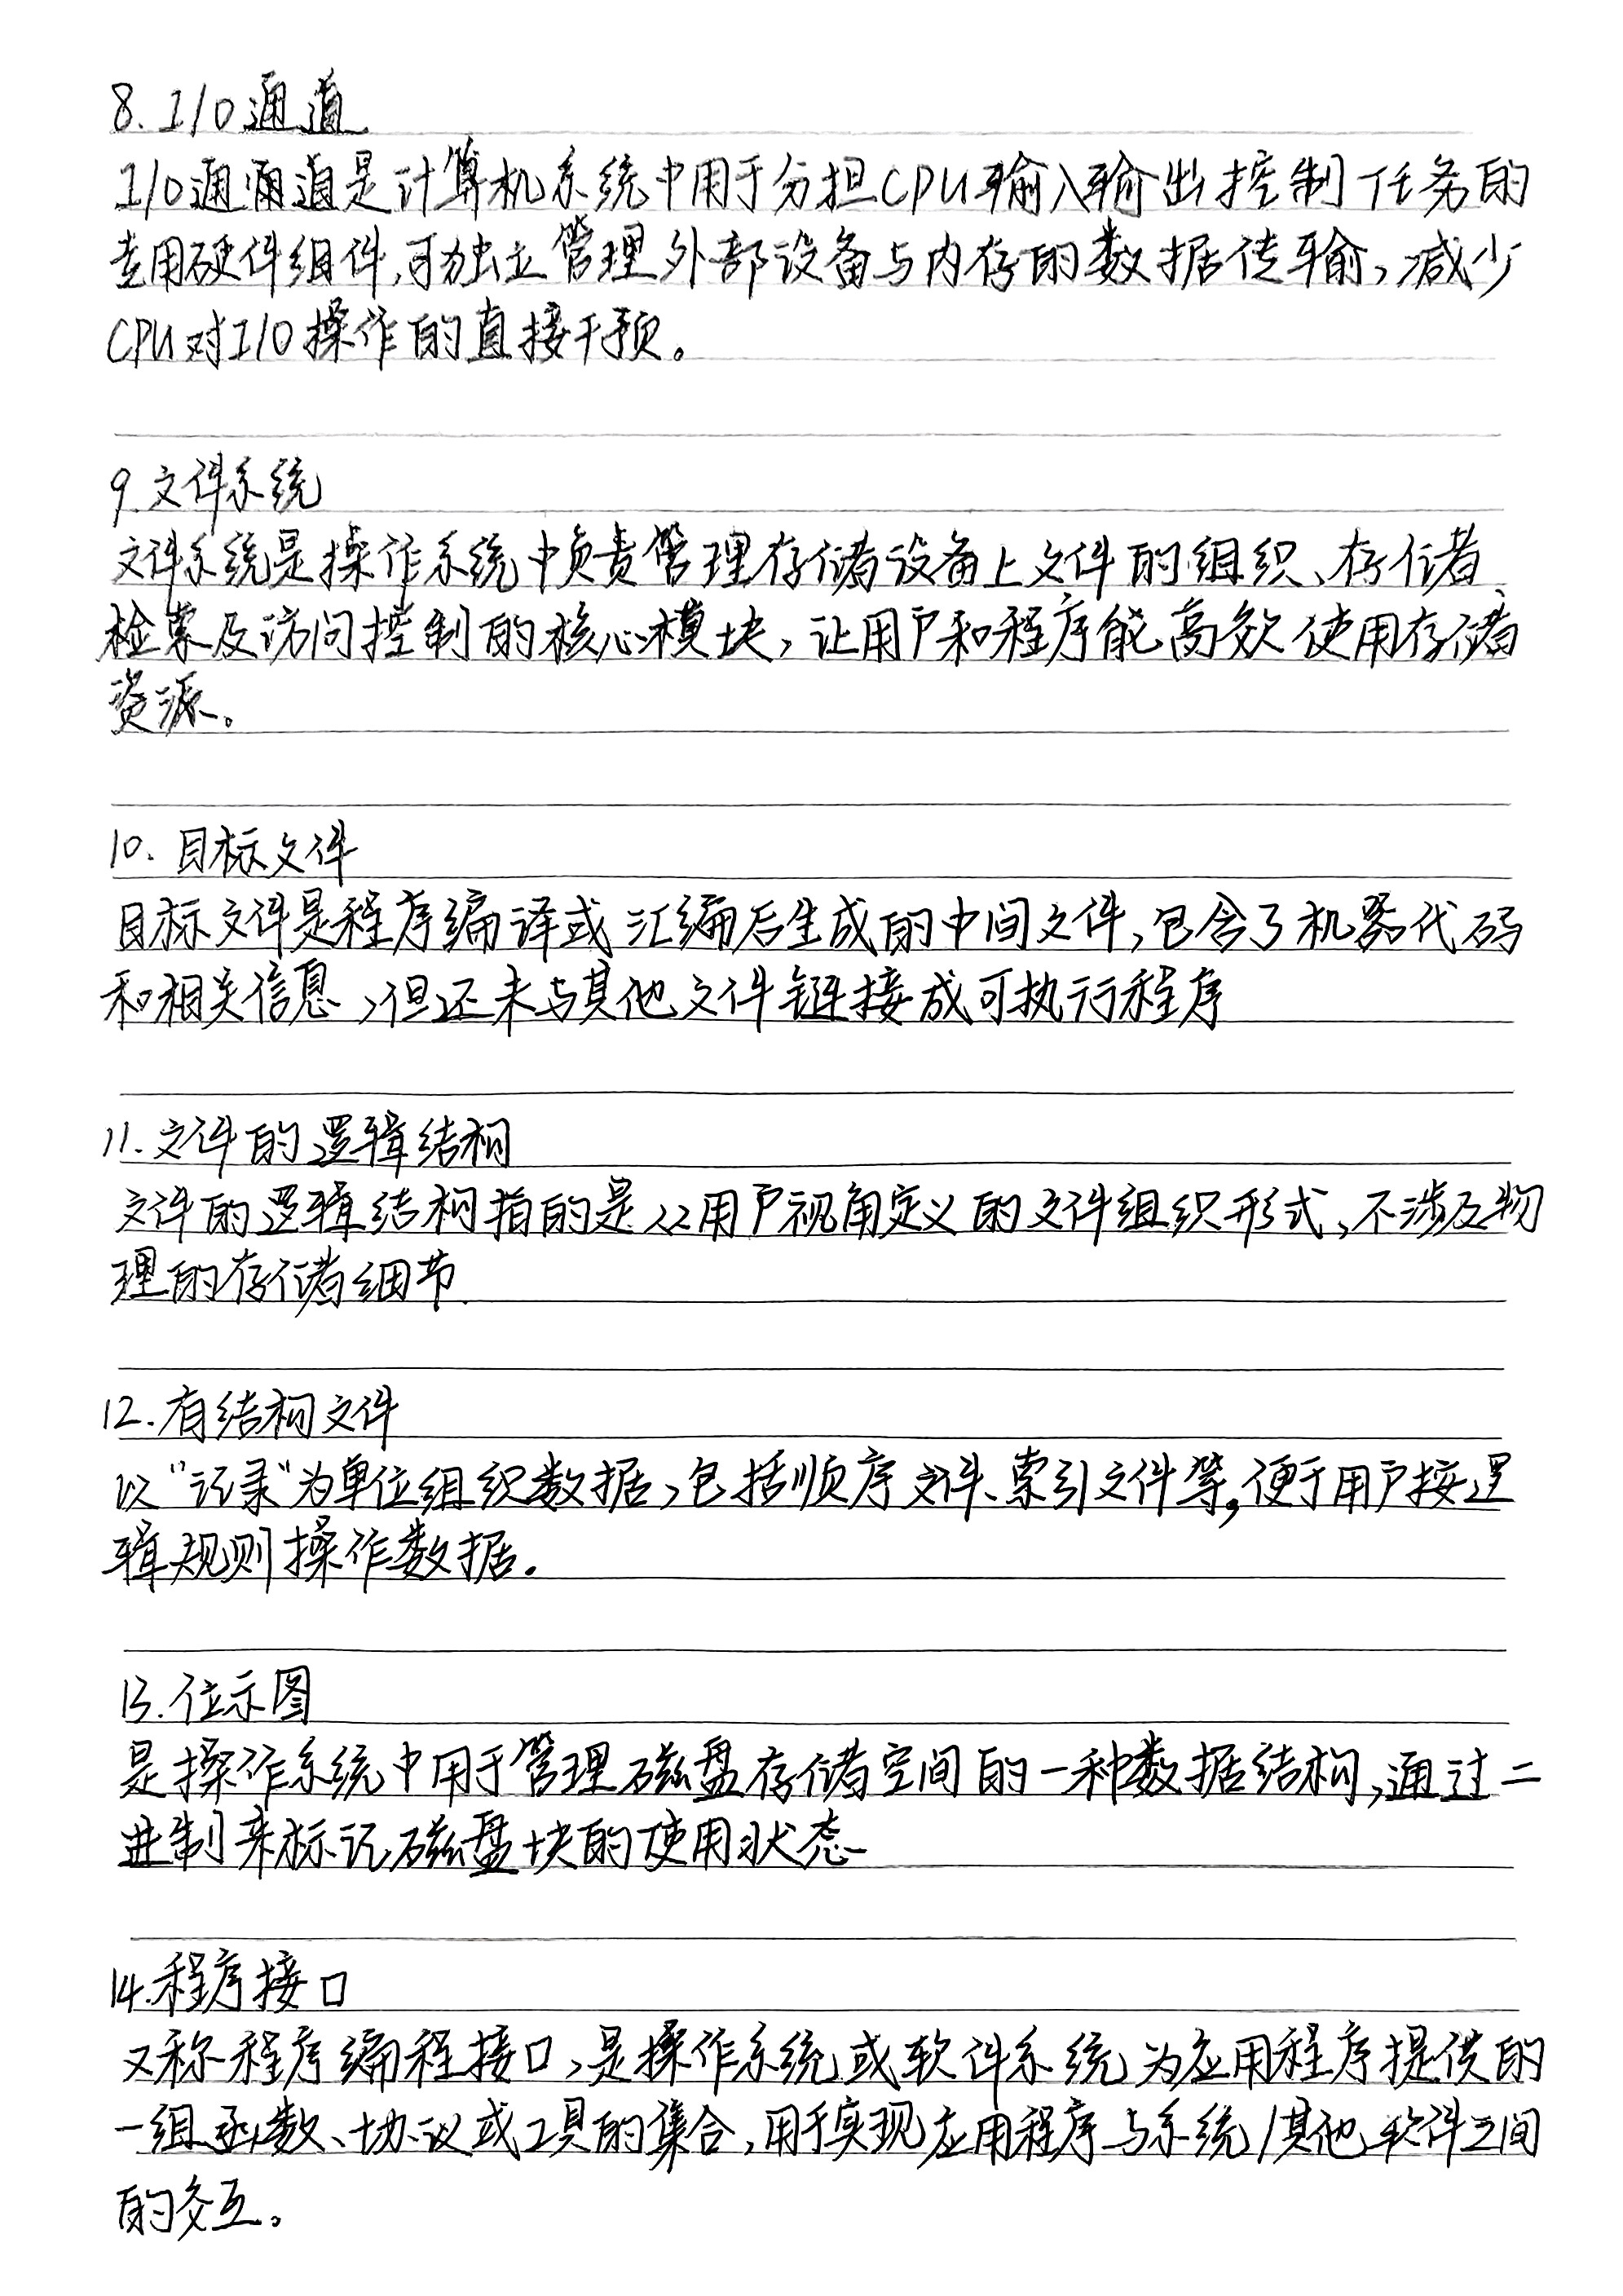 8. I/O通道
I/O通道是计算机系统中用于分担CPU输入输出控制任务的
专用硬件组件,可独立管理外部设备与内存的数据传输,减少
CPU对I/O操作的直接干预。
9.文件系统
文件系统是操作系统中负责管理存储设备上文件的组织、存储、
检索及访问控制的核心模块,让用户和程序能高效使用存储
资源。
10. 目标文件
目标文件是程序编译或汇编后生成的中间文件,包含了机器代码
和相关信息,但还未与其他文件链接成可执行程序
11.文件的逻辑结构
文件的逻辑结构指的是以用户视角定义的文件组织形式,不涉及物
理的存储细节.
12.有结构文件
以“记录”为单位组织数据,包括顺序文件、索引文件等,便于用户按逻
辑规则操作数据.
13.位示图
是操作系统中用于管理磁盘存储空间的一种数据结构,通过二
进制来标记磁盘块的使用状态
14.程序接口
又称程序编程接口,是操作系统或软件系统为应用程序提供的
一组函数、协议或工具的集合,用于实现应用程序与系统/其他软件之间
的交互。